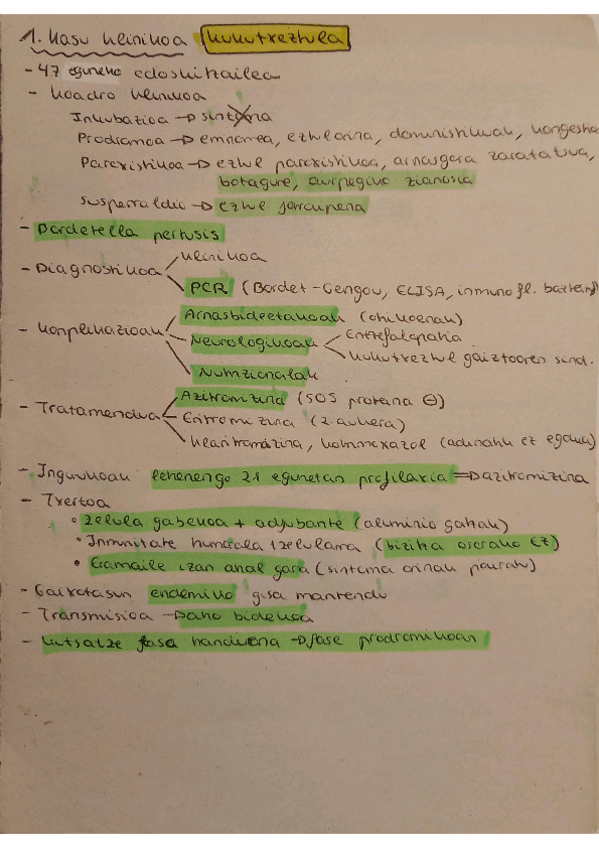 1. Kasu klinikoa kukutxeztula
- 47 eguneko edoskitzailea
- Koadro klinikoa
Inkubazioa → sintoma
Prodromoa → eztul arina,
Paroxistikoa → eztul paroxistikoa, arnasgora zaratatsua,
botagure, aurpegiko zianosia
Susperraldia → eztul jarraupena
- Bordetella pertusis
- Diagnostikoa klinikoa
PCR (Bordet-Gengou, ELISA, inmuno fl.
- Konplikazioak Arnasbideetakoak (ohikoenak)
Neurologikoak Entzefalopatia
kukutxeztul gaiztoaren sind.
Nutrizionalak
- Tratamendua Azitromizina (SOS proteina ⊖)
Eritromizina (2. aukera)
klaritromizina, kotrimoxazol (adinak ez egokia)
- Ingurukoak lehenengo 21 egunetan profilaxia ⇒ azitromizina
- Txertoa
• zelula gabekoa + adjubante (aluminio gatzak)
• Inmunitate humorala + zelularra (bizitza osorako EZ)
• Eramaile izan ahal gara (sintoma arinak)
- Gaixotasun endemiko gisa mantendu
- Transmisioa → aho bidekoa
- kutsatze fase handiena → fase prodromikoan